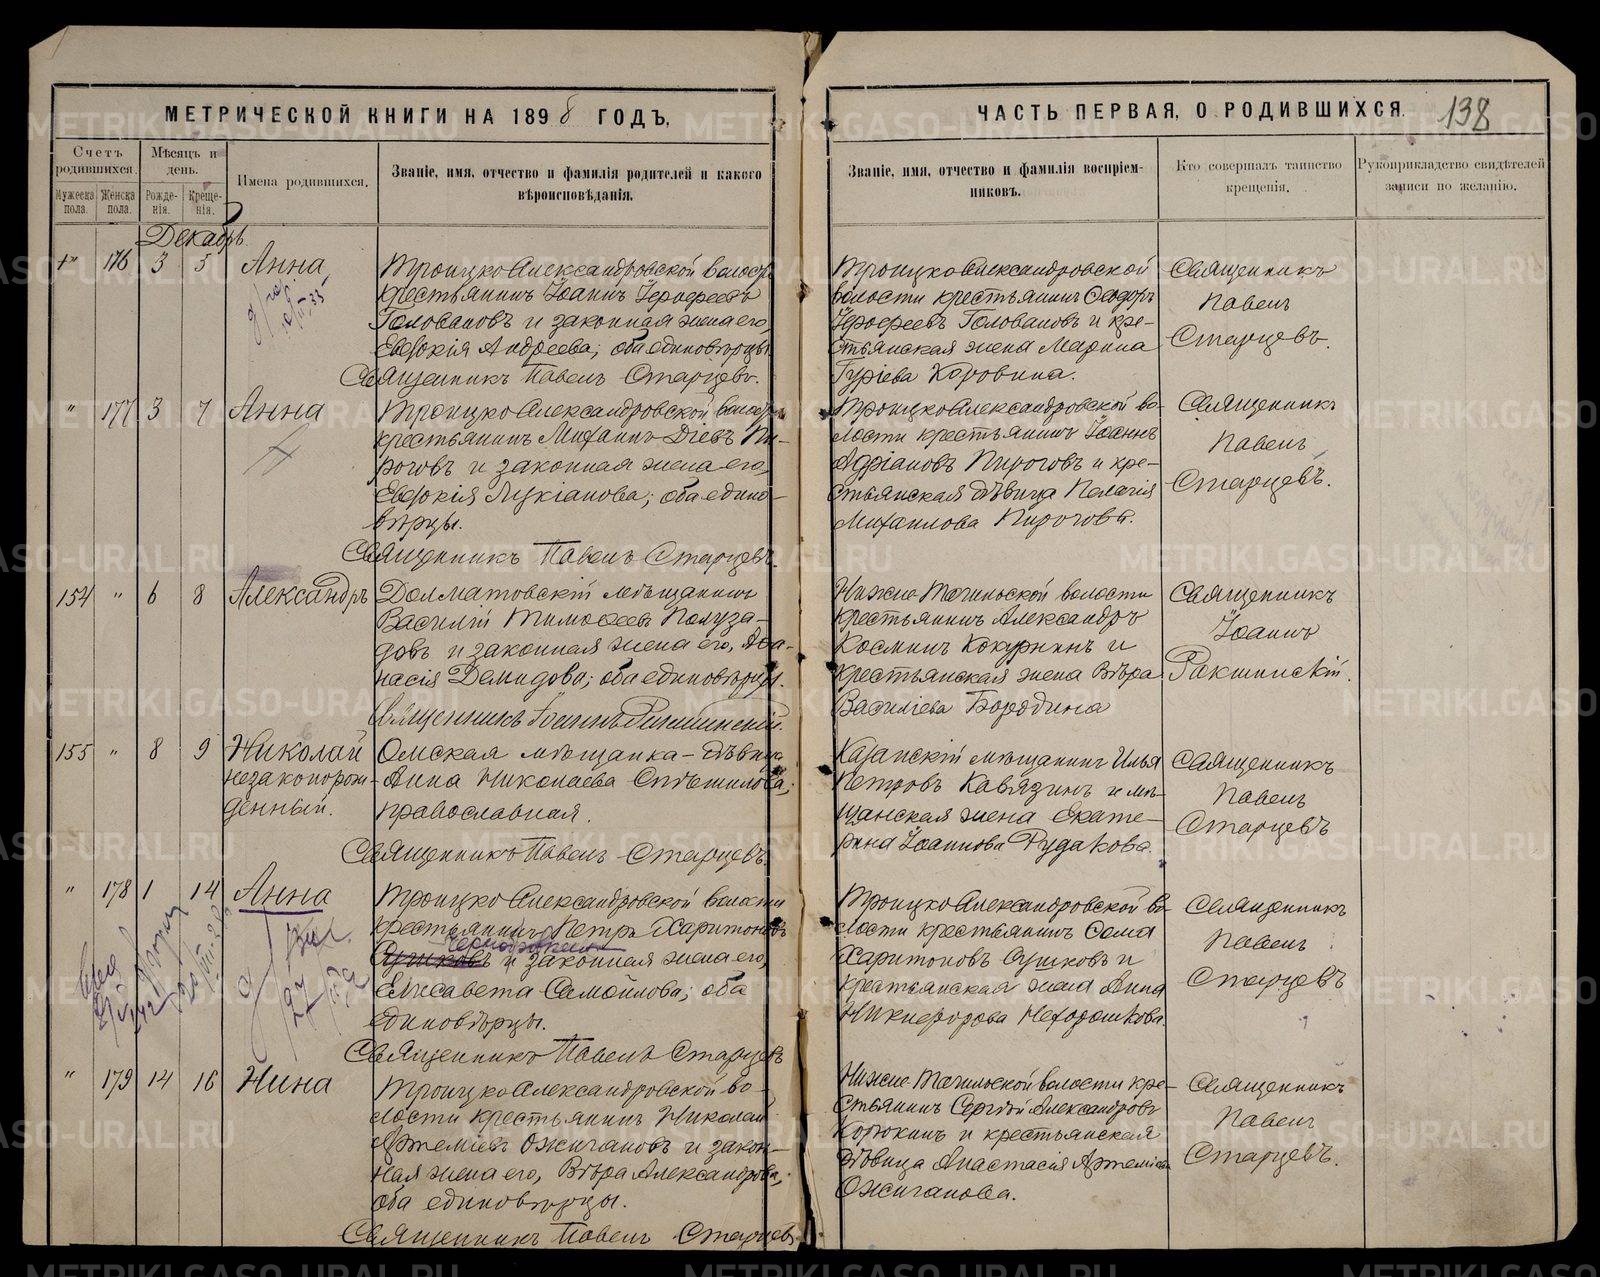 МЕТРИЧЕСКОЙ КНИГИ НА 1898 ГОДЪ,
Счетъ родившихся.
Мужеска пола.
Женска пола.
Мѣсяцъ и день.
Рожде-нія.
Креще-нія.
Имена родившихся.
Званіе, имя, отчество и фамилія родителей и какого
вѣроисповѣданія.
Декабрь
176 3 5 Анна
Троицко Александровской волости
крестьянинъ Іоаннъ Іерофеевъ
Головановъ и законная жена его,
Евдокія Андреева; оба единовѣрцы.
Священникъ Павелъ Старцевъ.
" 177 3 7 Анна
Троицко Александровской волости
крестьянинъ Михаилъ Діевъ Пи-
роговъ и законная жена его,
Евдокія Лукіанова; оба едино-
вѣрцы.
Священникъ Павелъ Старцевъ.
154 " 6 8 Александръ
Долматовскій мѣщанинъ
Василій Тимофеевъ Полуза-
довъ и законная жена его, Афа-
насія Демидова; оба единовѣрцы.
Священникъ Іоаннъ Ракшинскій.
155 " 8 9 Николай
незаконорож-
денный.
Омская мѣщанка - дѣвица
Анна Николаева Спѣшилова;
православная.
Священникъ Павелъ Старцевъ.
" 178 1 14 Анна
Троицко Александровской волости
крестьянинъ Петръ Харитоновъ
Сушковъ и законная жена его,
Елисавета Самойлова; оба
единовѣрцы.
Священникъ Павелъ Старцевъ
" 179 14 16 Нина
Троицко Александровской во-
лости крестьянинъ Николай
Артеміевъ Ожигановъ и закон-
ная жена его, Вѣра Александрова;
оба единовѣрцы.
Священникъ Павелъ Старцевъ
ЧАСТЬ ПЕРВАЯ, О РОДИВШИХСЯ.
138
Званіе, имя, отчество и фамилія воспріем-
никовъ.
Кто совершалъ таинство
крещенія.
Рукоприкладство свидѣтелей
записи по желанію.
Троицко Александровской
волости крестьянинъ Ѳеодоръ
Іерофеевъ Головановъ и кре-
стьянская жена Марина
Гуріева Коровина.
Священникъ
Павелъ
Старцевъ.
Троицко Александровской во-
лости крестьянинъ Іоаннъ
Адріановъ Пироговъ и кре-
стьянская дѣвица Пелагія
Михаилова Пирогова.
Священникъ
Павелъ
Старцевъ.
Нижне-Тагильской волости
крестьянинъ Александръ
Космичъ Кокурнинъ и
крестьянская жена Вѣра
Василіева Бородина
Священникъ
Іоаннъ
Ракшинскій.
Казанскій мѣщанинъ Илья
Петровъ Кавязинъ и мѣ-
щанская жена Екате-
рина Іоаннова Рудакова.
Священникъ
Павелъ
Старцевъ
Троицко Александровской во-
лости крестьянинъ Сама
Харитоновъ Сушковъ и
крестьянская жена Анна
Никифорова Неходошкова.
Священникъ
Павелъ
Старцевъ
Нижне-Тагильской волости кре-
стьянинъ Сергѣй Александровъ
Корюкинъ и крестьянская
дѣвица Анастасія Артеміева
Ожиганова.
Священникъ
Павелъ
Старцевъ.
METRIKI.GASO-URAL.RU